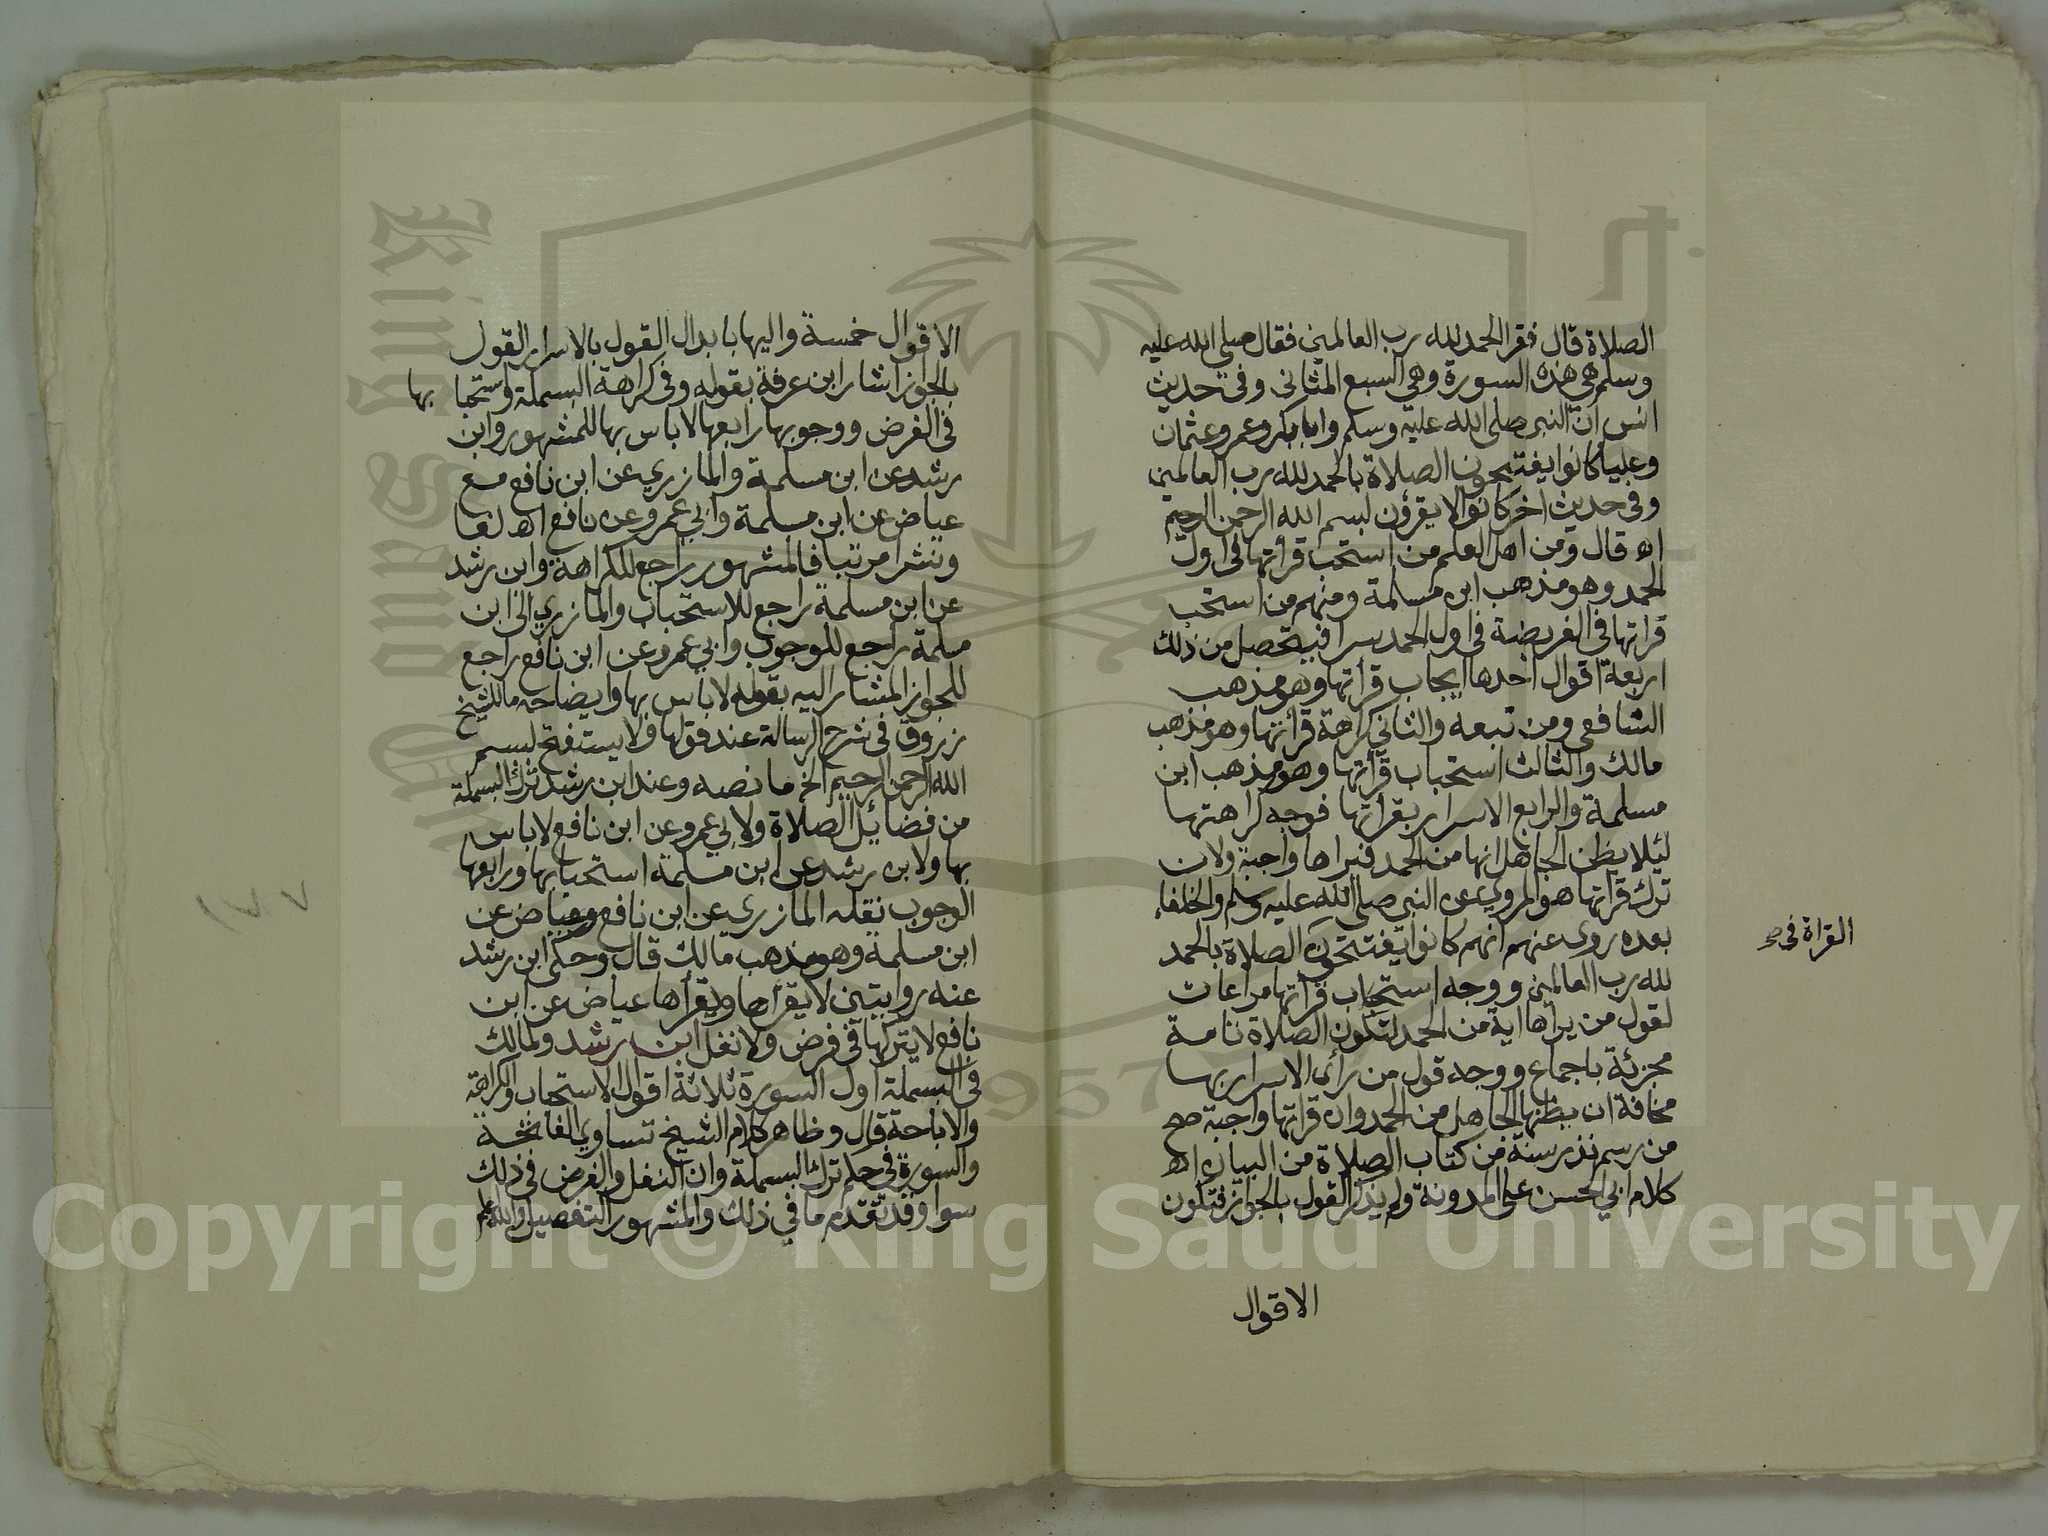 الصلاة قال فقرا الحمد لله رب العالمين فقال صلى الله عليه
وسلم هي هذه السورة وهي السبع المثاني وفي حديث
انس ان النبي صلى الله عليه وسلم وابا بكر وعمر وعثمان
وعليا كانوا يفتتحون الصلاة بالحمد لله رب العالمين
وفي حديث اخر كانوا لا يقرؤن بسم الله الرحمن الرحيم
اهـ قال ومن اهل العلم من استحب قرأتها في اول
الحمد وهو مذهب ابن مسلمة ومنهم من استحب
قراتها في الفريضة في اول الحمد سرا فيتحصل من ذلك
اربعة اقوال احدها ايجاب قرأتها وهو مذهب
الشافعي ومن تبعه والثاني كراهة قرأتها وهو مذهب
مالك والثالث استحباب قرأتها وهو مذهب ابن
مسلمة والرابع الاسرار بقرأتها فوجه كراهتها
ليلا يظن الجاهل انها من الحمد فيراها واجبة ولان
ترك قراتها هو المروي عن النبي صلى الله عليه وسلم والخلفاء
بعده روي عنهم انهم كانوا يفتتحون الصلاة بالحمد
القراة في صح
لله رب العالمين ووجه استحباب قرأتها مراعات
لقول من يراها اية من الحمد لتكون الصلاة تامة
مجزئة باجماع ووجه قول من رأى الاسرار بها
مخافة ان يظنها الجاهل من الحمد وان قراتها واجبة صح
من رسم نذر سنة من كتاب الصلاة من البيان اهـ
كلام ابي الحسن على المدونة ولم يذكر القول بالجواز فتكون
الاقوال
الاقوال خمسة واليها بابدال القول بالاسرار القول
بالجواز اشار ابن عرفة بقوله وفي كراهة البسملة واستحبا بها
في الفرض ووجوبها رابعها لا باس بها للمشهور وابن
رشد عن ابن مسلمة والمازري عن ابن نافع مع
عياض عن ابن مسلمة وابي عمر وعن نافع اهـ لفا
ونشرا مرتبا فالمشهور راجع للكراهة وابن رشد
عن ابن مسلمة راجع للاستحباب والمازري الى ابن
مسلمة راجع للوجوب وابي عمر وعن ابن نافع راجع
للجواز المشار اليه بقوله لا باس بها وايضاحه ما للشيخ
زروق في شرح الرسالة عند قولها ولا يستفتح ببسم
الله الرحمن الرحيم الخ ما نصه وعند ابن رشد ترك البسملة
من فضايل الصلاة ولابي عمر وعن ابن نافع لا باس
بها ولابن رشد عن ابن مسلمة استحبابها ورابعها
الوجوب نقله المازري عن ابن نافع وعياض عن
ابن مسلمة وهو مذهب مالك قال وحكى ابن رشد
عنه روايتين لا يقرأها ويقرأها عياض عن ابن
نافع لا يتركها في فرض ولا نفل ابن رشد ولمالك
في البسملة اول السورة ثلاثة اقوال الاستحباب والكراهة
والاباحة قال وظاهر كلام الشيخ تساوي الفاتحة
والسورة في حكم ترك البسملة وان النفل والفرض في ذلك
سوا وقد تقدم ما في ذلك والمشهور التفصيل والله اعلم
King Saud
1957
Copyright © King Saud University